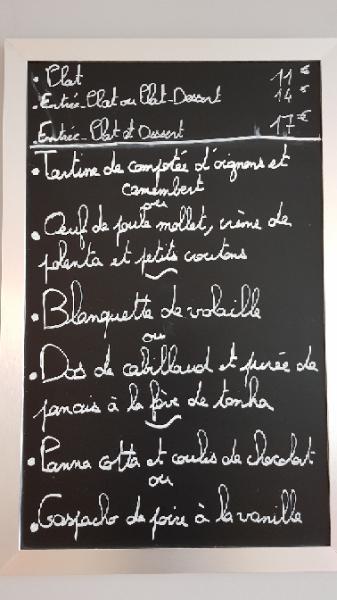 • Plat 11€
• Entrée-Plat ou Plat-Dessert 14€
• Entrée-Plat et Dessert 17€
• Tartine de compotée d'oignons et
camembert
ou
• Œuf de poule mollet, crème de
polenta et petits croutons
• Blanquette de volaille
ou
• Dos de cabillaud et purée de
panais à la fève de tonka
• Panna cotta et coulis de chocolat
ou
• Gaspacho de poire à la vanille